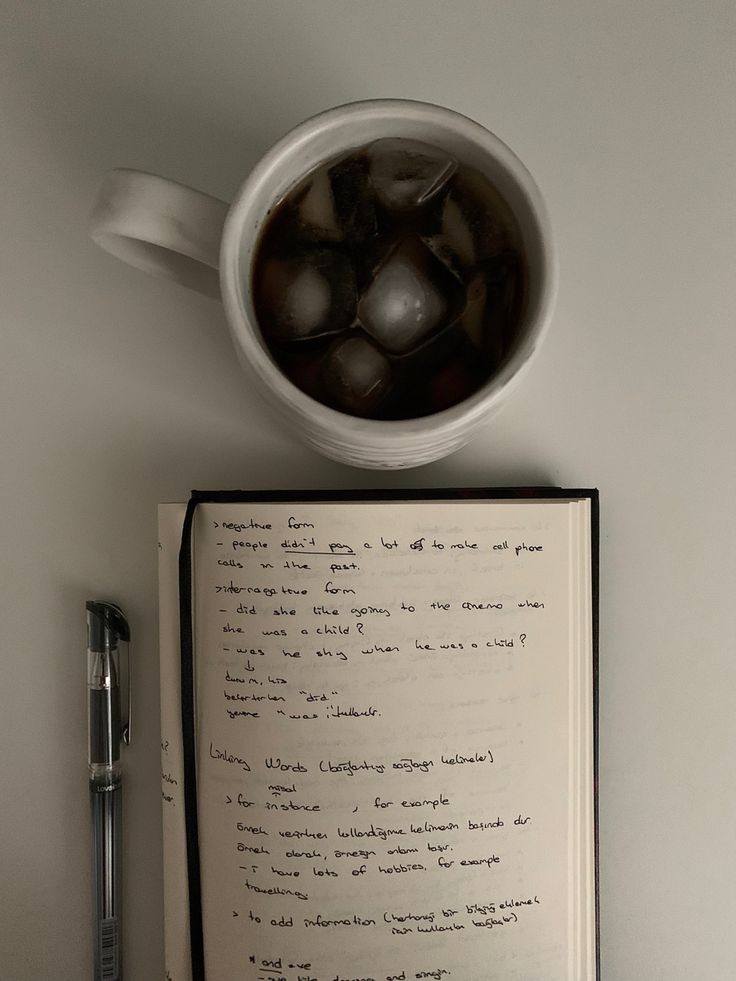 > negative form
- people didn't pay a lot of to make cell phone
calls in the past.
> interrogative form
- did she like going to the cinema when
she was a child?
- was he shy when he was a child?
↓
durum, his
belirtirken "did"
yerine "was" kullanılır.
Linking Words (bağlantıyı sağlayan kelimeler)
misal
> for instance, for example
örnek verirken kullandığımız kelimenin başında dır.
örnek olarak, örneğin anlamı taşır.
- i have lots of hobbies, for example
travelling.
> to add information (herhangi bir bilgiyi eklemek
için kullanılan bağlaçlar)
* and = ve
- like dancing and singin.